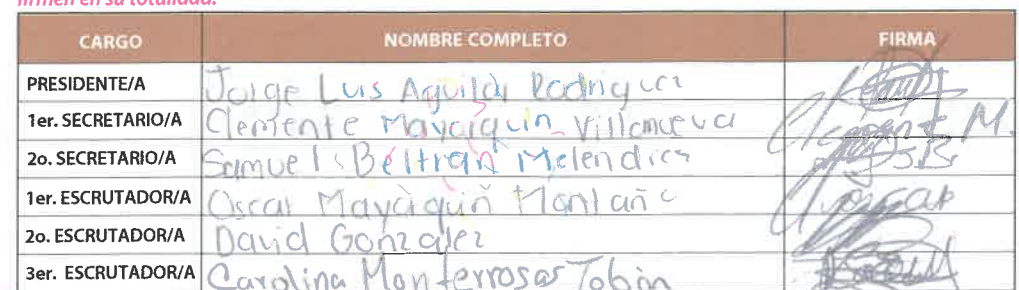 firmen en su totalidad.
CARGO NOMBRE COMPLETO FIRMA
PRESIDENTE/A Jorge Luis Aguilar Rodriguez
1er. SECRETARIO/A Clemente Mayaiquin Villanueva Clement M.
2o. SECRETARIO/A Samuel Beltran Melendres
1er. ESCRUTADOR/A Oscar Mayaiquiñ Oscar
2o. ESCRUTADOR/A David Gonzalez
3er. ESCRUTADOR/A Carolina Monterrosas Tobón